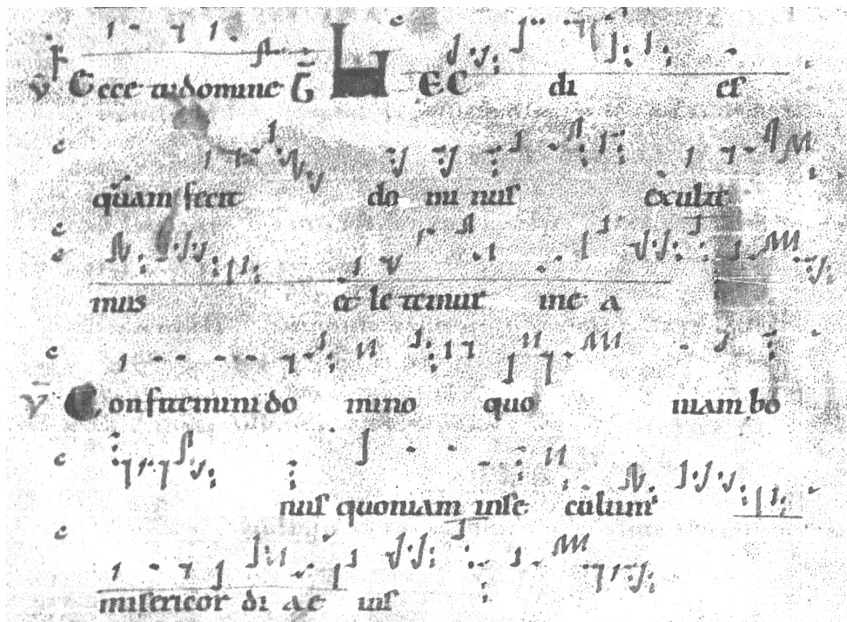 ℣ Ecce tu domine G̅ HEC di es
quam fecit do mi nus exulte
mus et le temur in e a
℣ Confitemini do mino quo niam bo
nus quoniam in se culum
misericor di a e ius